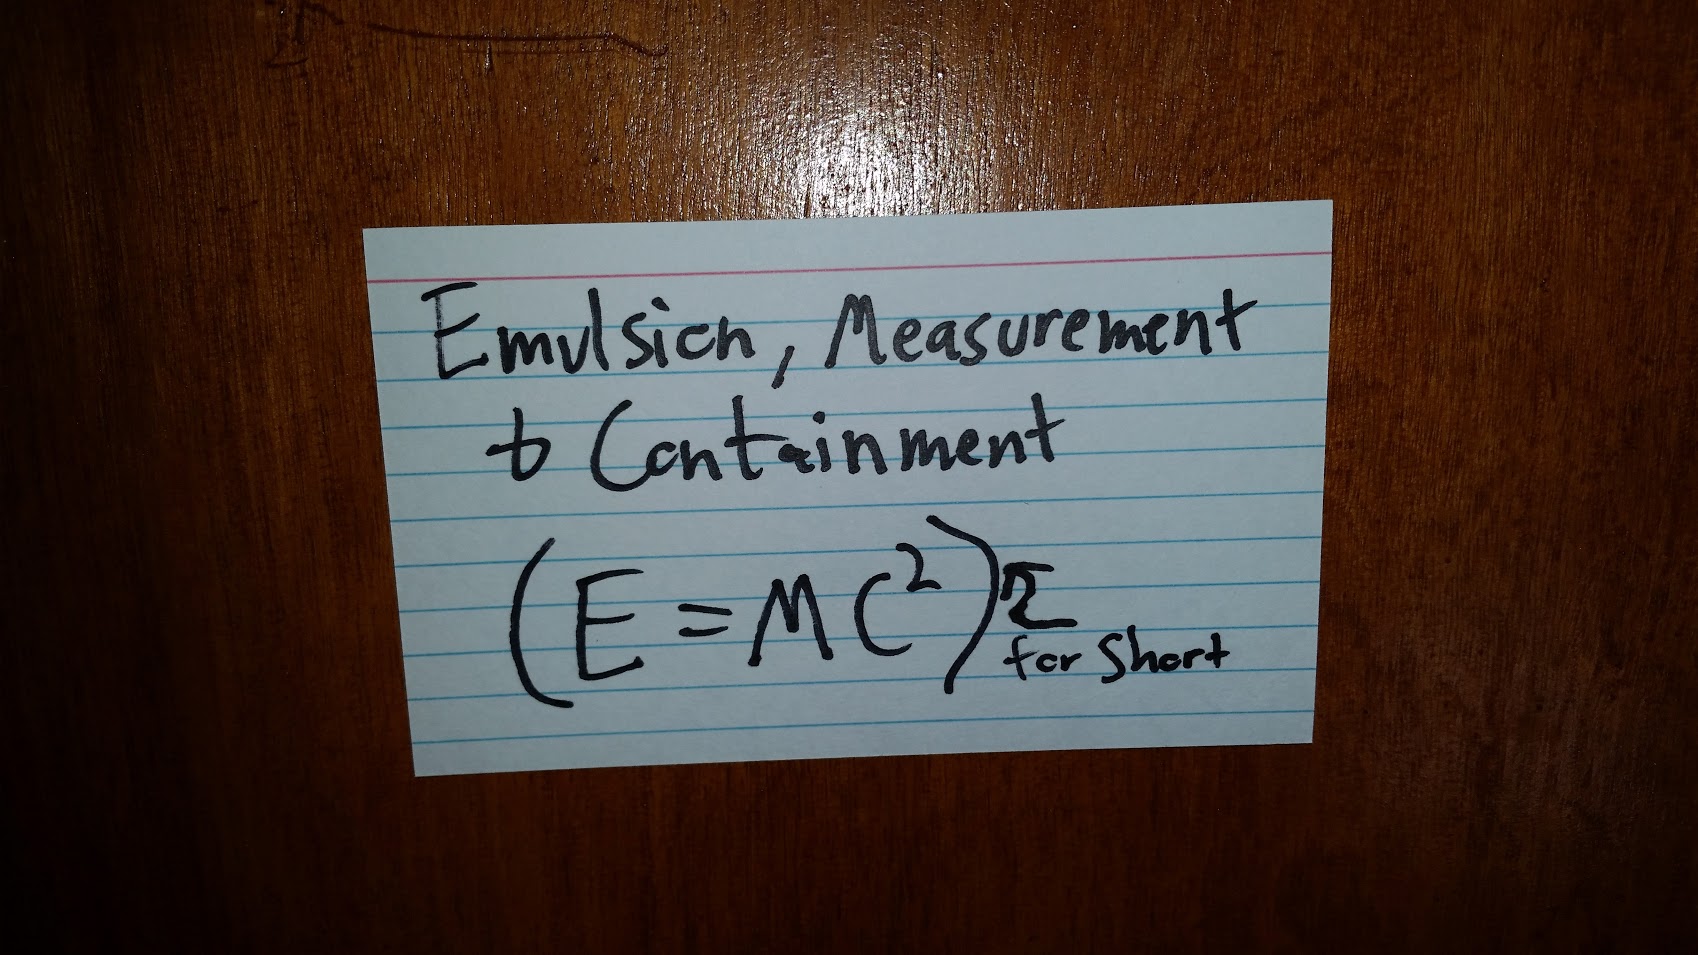 Emulsion, Measurement
& Containment
(E=MC²)
for Short